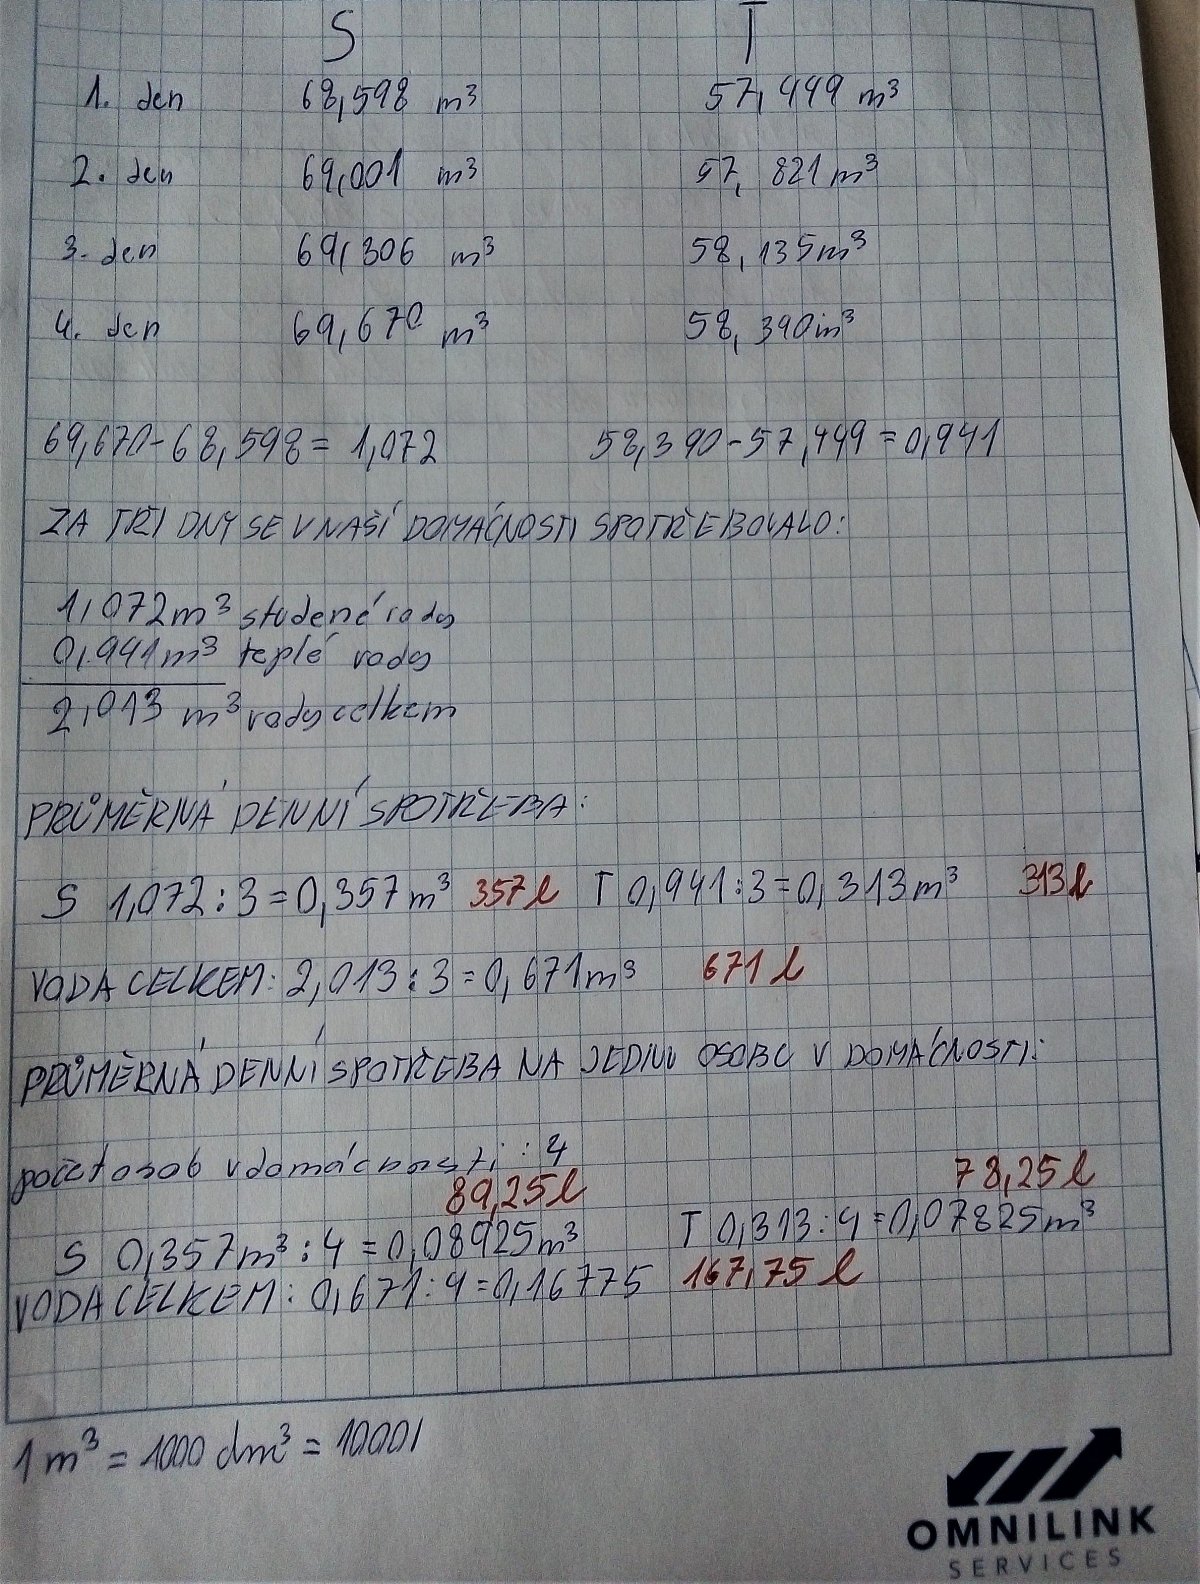 S T
1. den 68,598 m³ 57,449 m³
2. den 69,001 m³ 57,821 m³
3. den 69,306 m³ 58,135 m³
4. den 69,670 m³ 58,390 m³
69,670-68,598=1,072 58,390-57,449=0,941
ZA TŘI DNY SE V NAŠÍ DOMÁCNOSTI SPOTŘEBOVALO:
1,072 m³ studené vody
0,941 m³ teplé vody
2,013 m³ vody celkem
PRŮMĚRNÁ DENNÍ SPOTŘEBA:
S 1,072:3=0,357 m³ 357 l T 0,941:3=0,313 m³ 313 l
VODA CELKEM: 2,013:3=0,671 m³ 671 l
PRŮMĚRNÁ DENNÍ SPOTŘEBA NA JEDNU OSOBU V DOMÁCNOSTI:
počet osob v domácnosti: 4
89,25 l 78,25 l
S 0,357 m³:4=0,08925 m³ T 0,313:4=0,07825 m³
VODA CELKEM: 0,671:4=0,16775 167,75 l
1 m³ = 1000 dm³ = 1000 l
OMNILINK
SERVICES